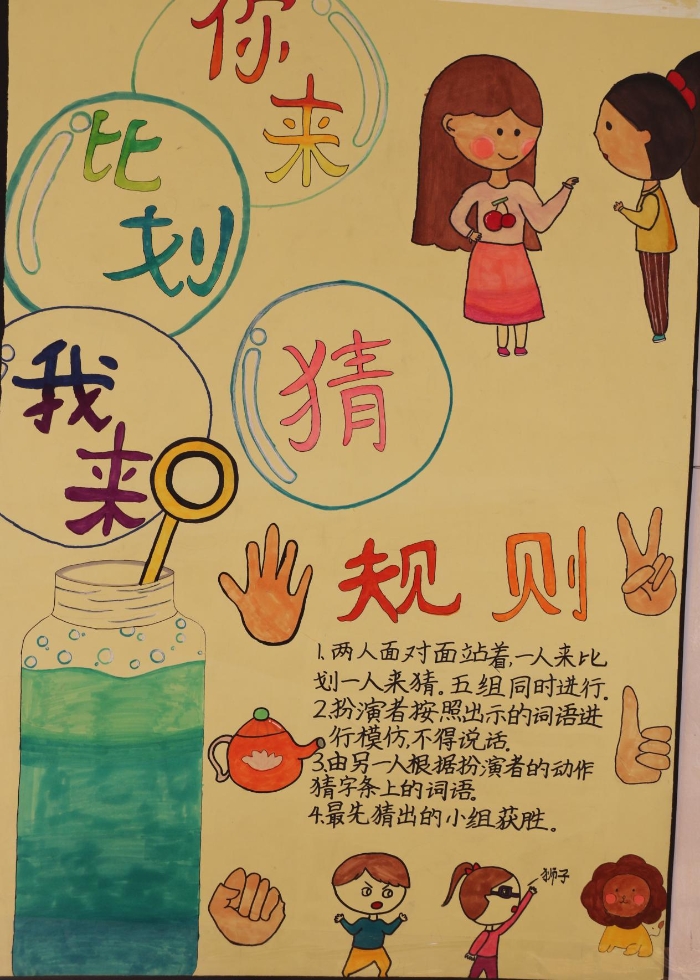 你
来
比
划
我
来
猜
规则
1.两人面对面站着,一人来比
划一人来猜。五组同时进行.
2.扮演者按照出示的词语进
行模仿,不得说话.
3.由另一人根据扮演者的动作
猜字条上的词语。
4.最先猜出的小组获胜。
狮子